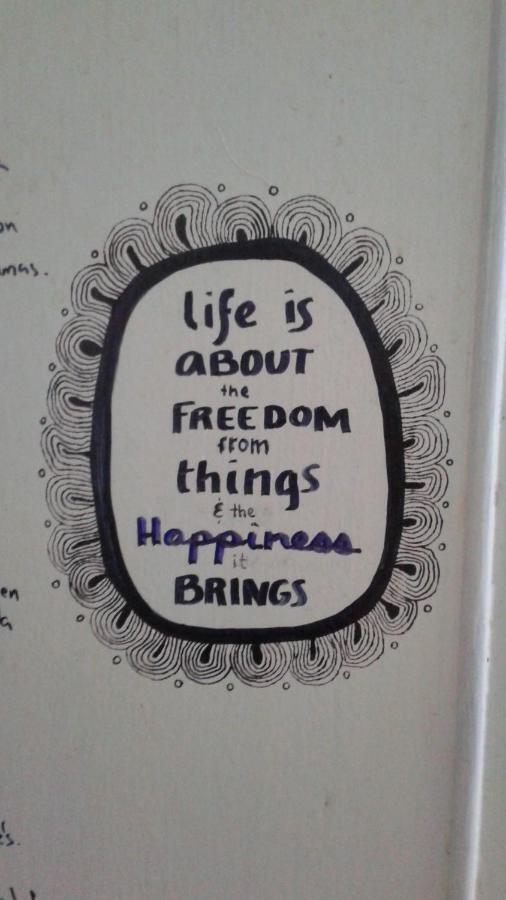 life is
ABOUT
the
FREEDOM
from
things
& the
Happiness
it
BRINGS